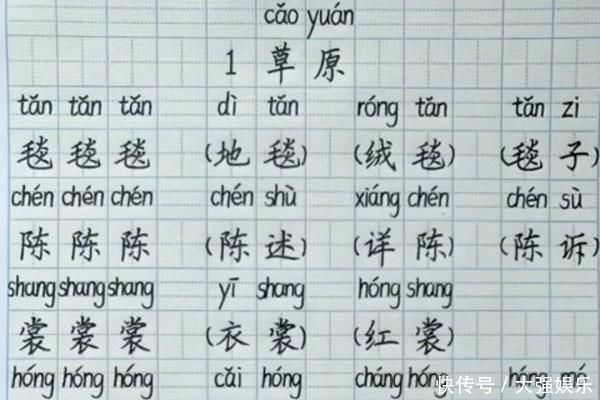 cǎo yuán
1 草 原
tǎn tǎn tǎn dì tǎn róng tǎn tǎn zi
毯 毯 毯 (地 毯) (绒 毯) (毯 子)
chén chén chén chén shù xiáng chén chén sù
陈 陈 陈 (陈 述) (详 陈) (陈 诉)
shang shang shang yī shang hóng shang
裳 裳 裳 (衣 裳) (红 裳)
hóng hóng hóng cǎi hóng cháng hóng hóng
快传号 / 大强娱乐